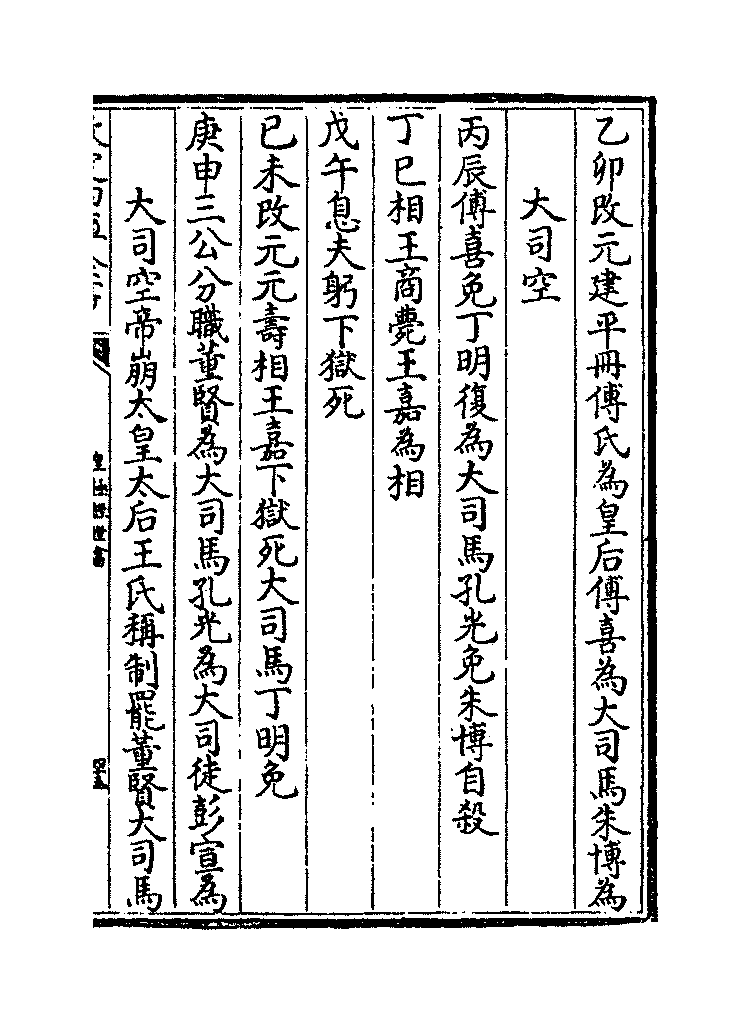 乙卯改元建平冊傅氏為皇后傅喜為大司馬朱博為
大司空
丙辰傅喜免丁明復為大司馬孔光免朱博自殺
丁巳相王商薨王嘉為相
戊午息夫躬下獄死
己未改元元壽相王嘉下獄死大司馬丁明免
庚申三公分職董賢為大司馬孔光為大司徒彭宣為
大司空帝崩太皇太后王氏稱制罷董賢大司馬